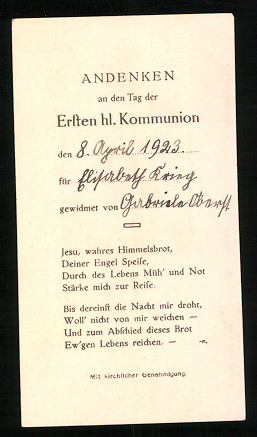 ANDENKEN
an den Tag der
Erſten hl. Kommunion
den 8. April 1923.
für Elisabeth Krieg
gewidmet von Gabriele Oberst
Jesu, wahres Himmelsbrot,
Deiner Engel Speiſe,
Durch des Lebens Müh' und Not
Stärke mich zur Reiſe.
Bis dereinſt die Nacht mir droht,
Woll' nicht von mir weichen —
Und zum Abſchied dieses Brot
Ew'gen Lebens reichen. — -n.
Mit kirchlicher Genehmigung.